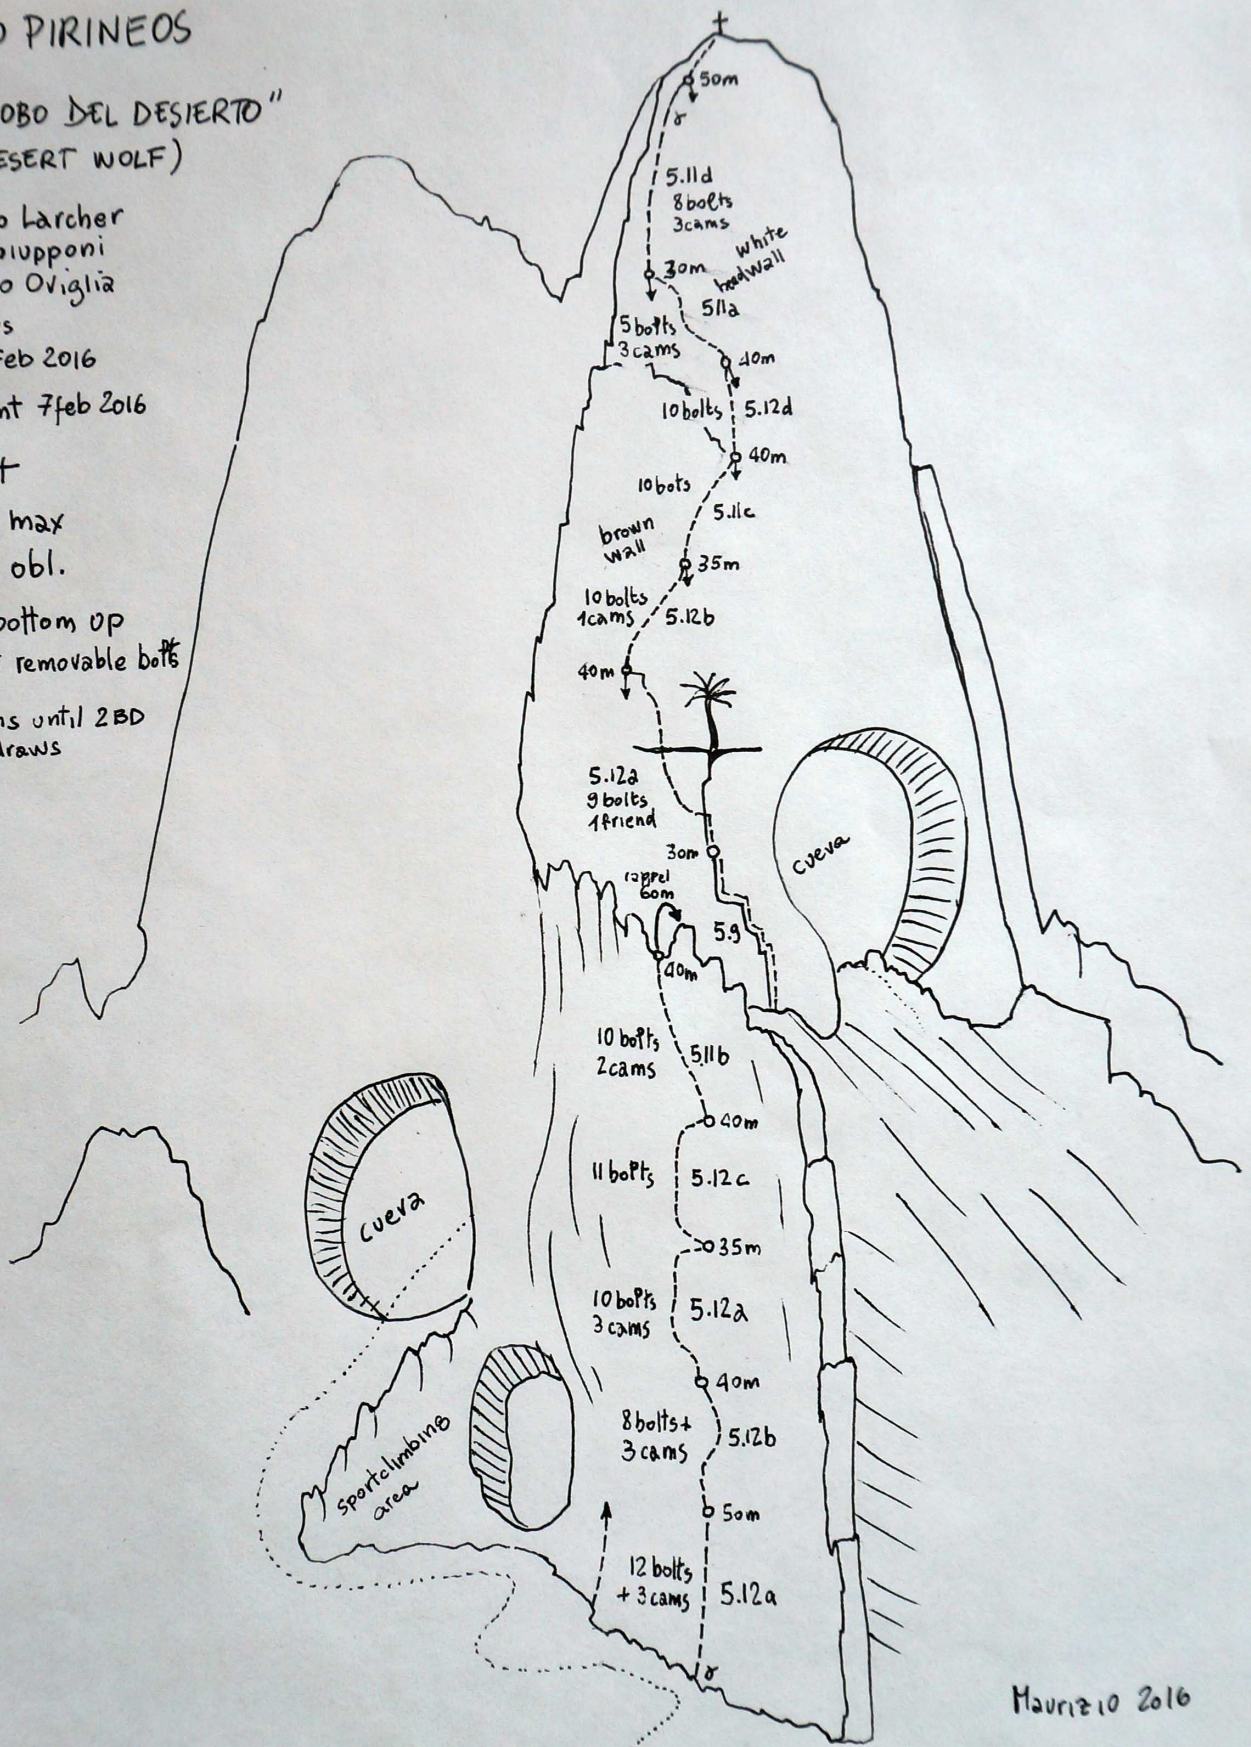 PIRINEOS
OBO DEL DESIERTO"
ESERT WOLF)
o Larcher
o Oviglia
feb 2016
nt 7feb 2016
+
max
obl.
bottom up
removable bolts
ns until 2BD
draws
50m
5.11d
8bolts
3cams
white
headwall
30m
5.11a
5 bolts
3 cams
40m
10 bolts 5.12d
40m
10 bots
5.11c
brown
wall
35m
10 bolts
1cams 5.12b
40m
5.12a
9 bolts
1friend
cueva
30m
rappel
60m
5.9
40m
10 bolts
2cams
5.11b
40m
11 bolts 5.12c
cueva
35m
10 bolts
3 cams
5.12a
40m
8bolts+
3 cams
5.12b
sportclimbing
area
50m
12 bolts
+ 3 cams
5.12a
Maurizio 2016